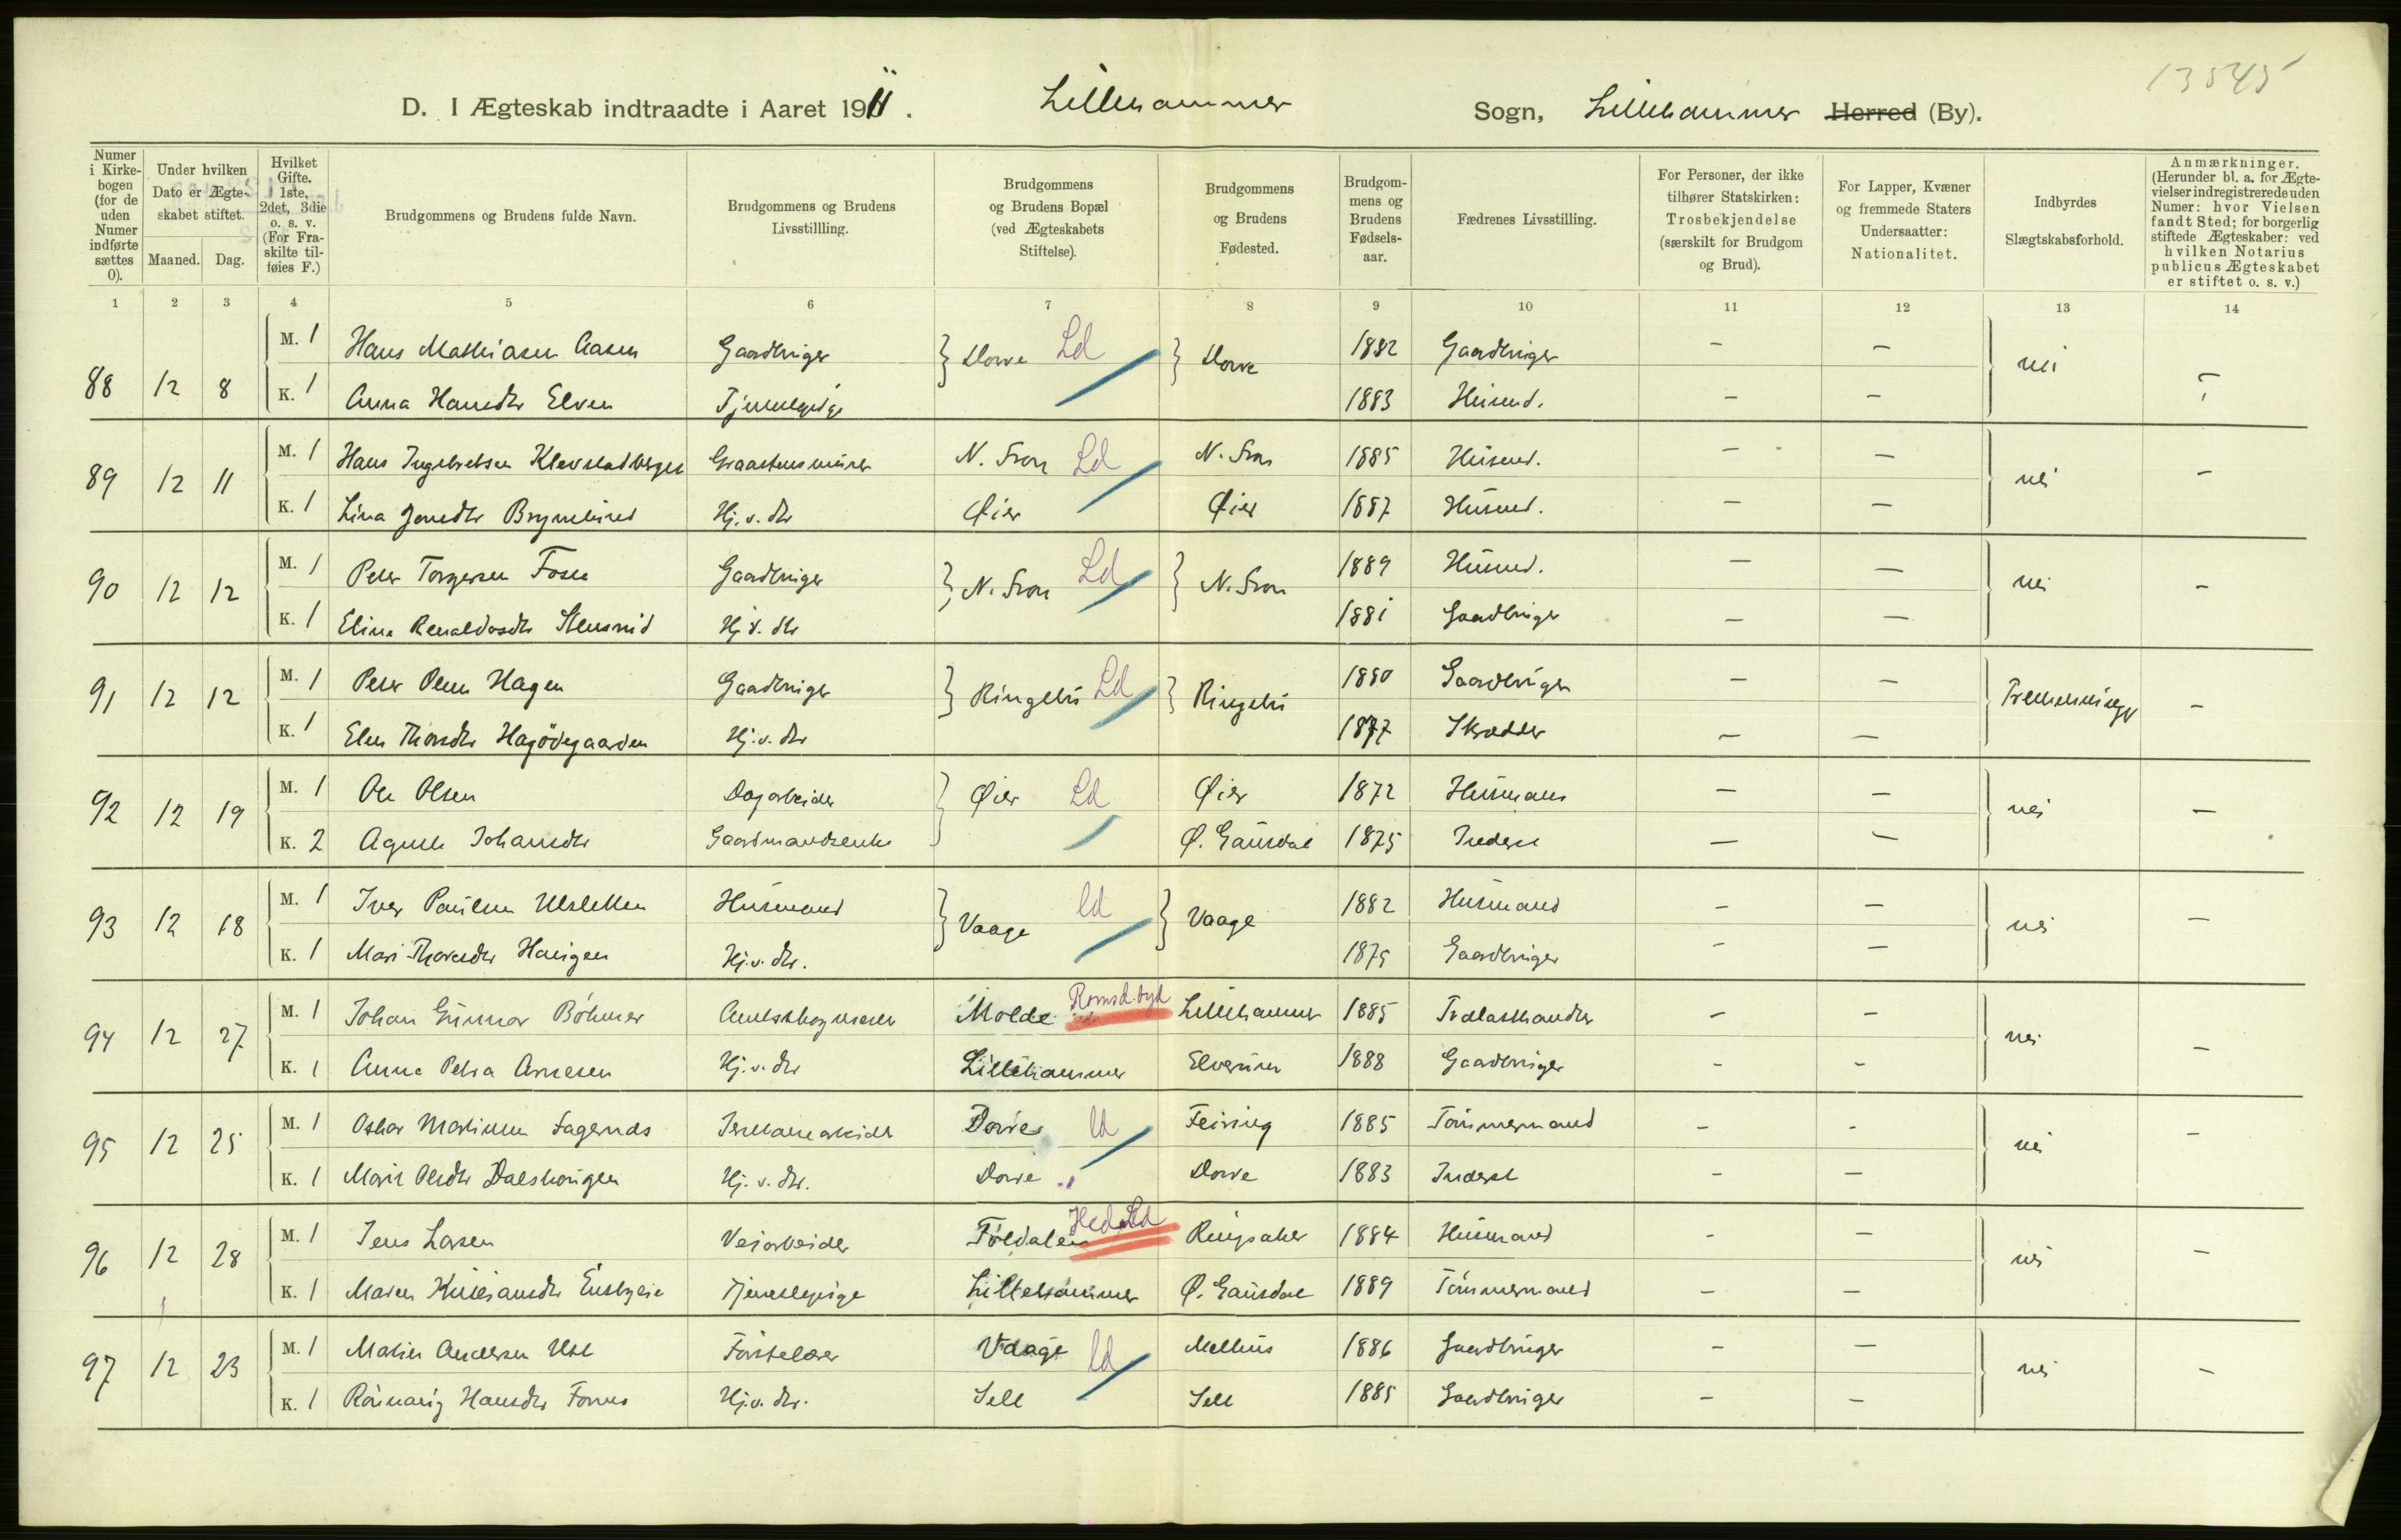 13545
D. I Ægteskab indtraadte i Aaret 1911. Lillehammer Sogn, Lillehammer Herred (By).
Numer i Kirkebogen (for de uden Numer indførte sættes 0).
Under hvilken Dato er Ægteskabet stiftet.
Maaned. Dag.
Hvilket Gifte. 1ste, 2det, 3die o. s. v. (For Fraskilte tilføies F.)
Brudgommens og Brudens fulde Navn.
Brudgommens og Brudens Livsstillling.
Brudgommens og Brudens Bopæl (ved Ægteskabets Stiftelse).
Brudgommens og Brudens Fødested.
Brudgommens og Brudens Fødselsaar.
Fædrenes Livsstilling.
For Personer, der ikke tilhører Statskirken: Trosbekjendelse (særskilt for Brudgom og Brud).
For Lapper, Kvæner og fremmede Staters Undersaatter: Nationalitet.
Indbyrdes Slægtskabsforhold.
Anmærkninger. (Herunder bl. a. for Ægtevielser indregistrerede uden Numer: hvor Vielsen fandt Sted; for borgerlig stiftede Ægteskaber: ved hvilken Notarius publicus Ægteskabet er stiftet o. s. v.)
1 2 3 4 5 6 7 8 9 10 11 12 13 14
88 12 8 M. 1 Hans Mathiasen Aasen Gaardbruger } Dovre Ld } Dovre 1882 Gaardbruger - - nei -
K. 1 Anna Hansdtr Elven Tjenestepige 1883 Husmd. - -
89 12 11 M. 1 Hans Ingebretsen Klevstadberget Graastensmurer N. Fron Ld N. Fron 1885 Husmd. - - nei -
K. 1 Lina Jonsdtr Hj. v. dtr Øier Øier 1887 Husmd. - -
90 12 12 M. 1 Peter Torgersen Fosse Gaardbruger } N. Fron Ld } N. Fron 1889 Husmd. - - nei -
K. 1 Eline Stensrud Hj. v. dtr 1881 Gaardbruger - -
91 12 12 M. 1 Peter Olsen Hagen Gaardbruger } Ringebu Ld } Ringebu 1880 Gaardbruger - - -
K. 1 Elen Thorsdtr Hagødegaarden Hj. v. dtr 1877 Skrædder - -
92 12 19 M. 1 Ole Olsen Dagarbeider } Øier Ld Øier 1872 Husmand - - nei -
K. 2 Agnete Johansdtr Gaardmandsenke Ø. Gausdal 1875 Inderst - -
93 12 18 M. 1 Iver Paulsen Husmand } Vaage Ld } Vaage 1882 Husmand - - nei -
K. 1 Mari Haugen Hj. v. dtr. 1879 Gaardbruger - -
94 12 27 M. 1 Johan Gunnar Böhmer Molde Romsd. byd Lillehammer 1885 Trælasthandler - - nei -
K. 1 Anna Petra Arnesen Hj. v. dtr Lillehammer Elverum 1888 Gaardbruger - -
95 12 25 M. 1 Oskar Martinsen Fagernæs Jernbanearbeider Dovre Ld Feiring 1885 Tømmermand - - nei -
K. 1 Marit Olsdtr Dalshaugen Hj. v. dtr. Dovre " Dovre 1883 Inderst - -
96 12 28 M. 1 Jens Larsen Veiarbeider Foldalen Hed. Ld Ringsaker 1884 Husmand - - nei -
K. 1 Maren Kristiansdtr Ensbyeie Tjenestepige Lillehammer Ø. Gausdal 1889 Tømmermand - -
97 12 23 M. 1 Martin Andersen Forstelærer Vaage Ld Melhus 1886 Gaardbruger - - nei -
K. 1 Hansdtr Hj. v. dtr. Sell Sell 1885 Gaardbruger - -